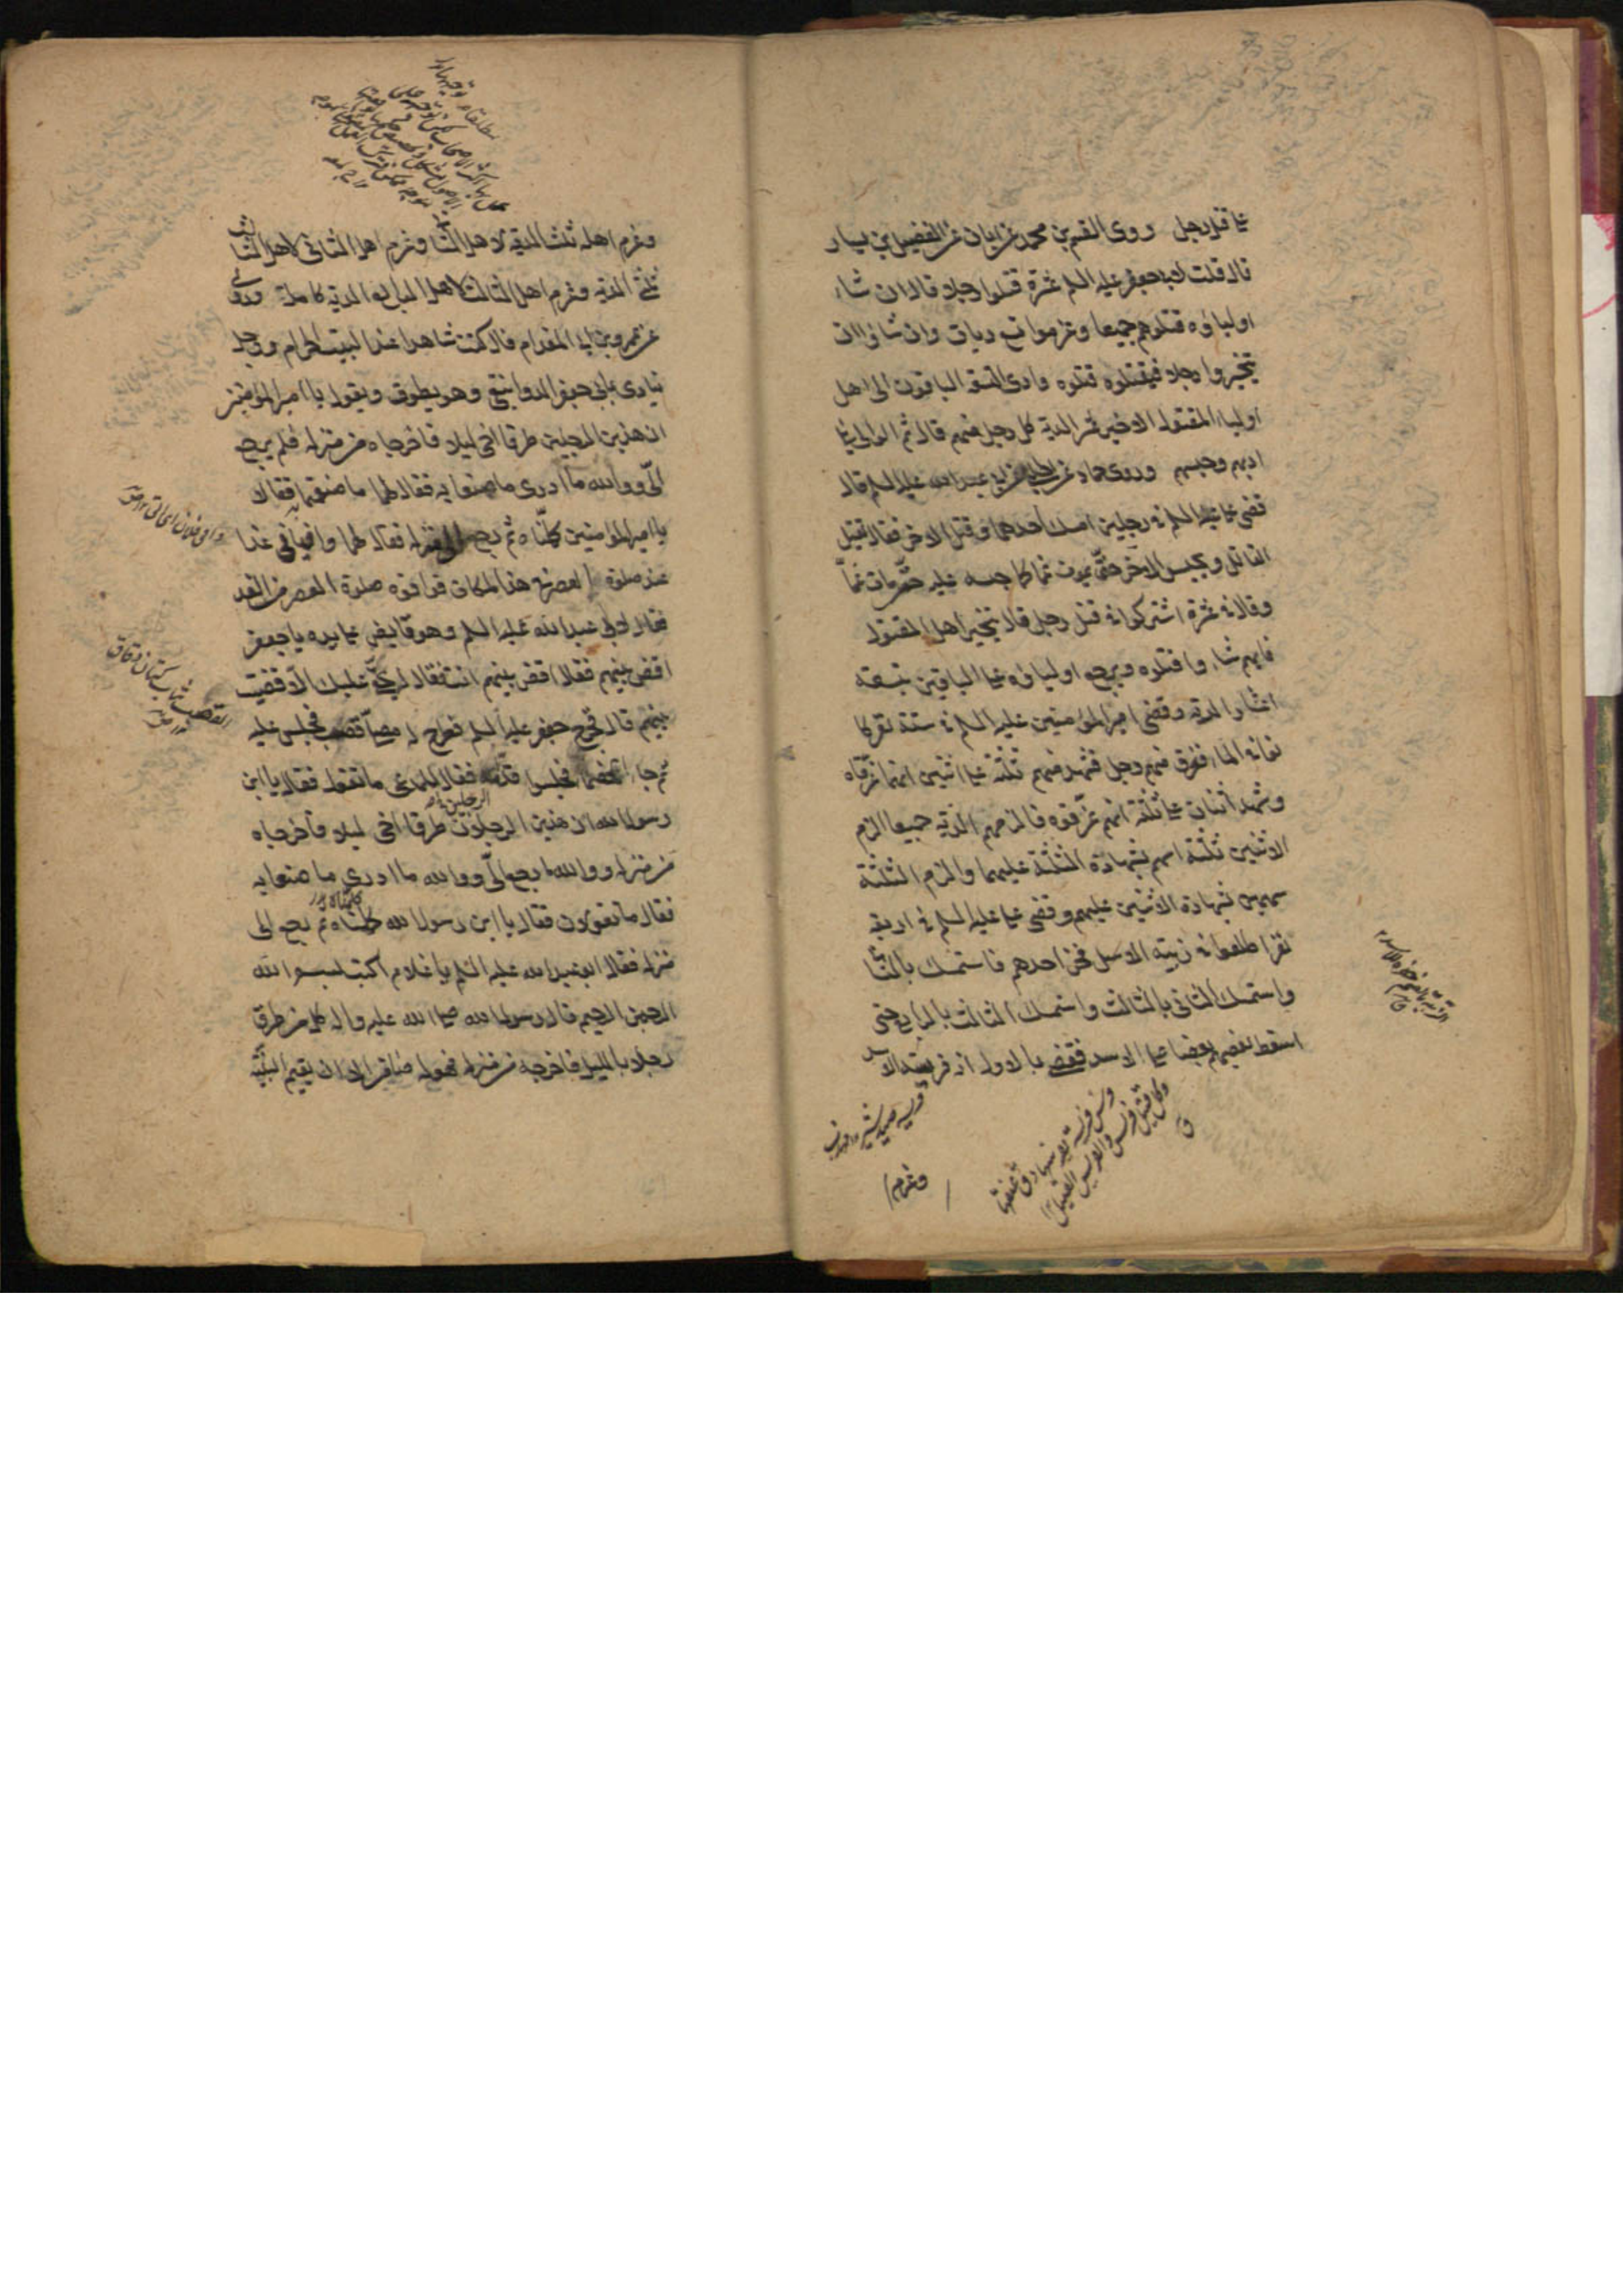 على قتل رجل وروى القسم بن محمد عن ابان عن الفضيل بن يسار
قال قلت لابي جعفر عليه السلم عشرة قتلوا رجلا قال ان شاء
اولياؤه قتلوهم جميعا وغرموا تسع ديات وان شاؤا ان
يتخيروا رجلا فيقتلوه قتلوه وادى التسعة الباقون الى اهل
اولياء المقتول الاخير عشر الدية كل رجل منهم قال ثم الوالي يلي
ادبهم وحبسهم وروى حماد عن الحلبي عن ابي عبد الله عليه السلم قال
قضى علي عليه السلم في رجلين امسك احدهما وقتل الاخر فقال يقتل
القاتل ويحبس الآخر حتى يموت غما كما حبسه عليه حتى مات غماً
وقال في عشرة اشتركوا في قتل رجل قال يتخير اهل المقتول
فايهم شاءوا قتلوه ويرجع اولياؤه على الباقين بتسعة
اعشار الدية وقضى امير المؤمنين عليه السلم في ستة نفر كا
نوا في الماء فغرق منهم رجل فشهد منهم ثلثة على اثنين انهما غرقاه
وشهد اثنان على ثلثة انهم غرّقوه فالزمهم الدية جميعا الزم
الاثنين ثلثة اسهم بشهادة الثلثة عليهما والزم الثلثة
سهمين بشهادة الاثنين عليهم وقضى علي عليه السلم في اربعة
نفر اطلعوا في زبية الاسد فخر احدهم فاستمسك بالثاني
واستمسك الثاني بالثالث واستمسك الثالث بالرابع حتى
اسقط بعضهم بعضا على الاسد فقضى بالاول انه فريسة الاسد
وغرم
وغرم اهله ثلث الدية لاهل الثاني وغرم اهل الثاني لاهل الثالث
ثلثي الدية وغرم اهل الثالث لاهل الرابع الدية كاملة وروى
عن عمرو بن ابي المقدام قال كنت شاهدا عند البيت الحرام ورجل
ينادي بابي جعفر الدوانيقي وهو يطوف ويقول يا امير المؤمنين
ان هذين الرجلين طرقا اخي ليلا فاخرجاه من منزله فلم يرجع
الىّ ووالله ما ادري ما صنعا به فقال لهما ما صنعتما به فقالا
يا امير المؤمنين كلمناه ثم رجع الى منزله فقال لهما وافياني غدا
عند صلوة العصر في هذا المكان فوافوه صلوة العصر من الغد
فقال لابي عبد الله عليه السلم وهو قابض على يده يا جعفر
اقض بينهم فقال اقض بينهم انت فقال له بحقي عليك الا قضيت
بينهم قال فخرج جعفر عليه السلم فطرح له مصلى قصب فجلس عليه
ثم جاء الخصماء فجلسوا قدامه فقال للمدعي ما تقول فقال يا ابن
رسول الله ان هذين الرجلين طرقا اخي ليلا فاخرجاه
من منزله ووالله ما رجع الىّ ووالله ما ادري ما صنعا به
فقال ما تقولان فقالا يا ابن رسول الله كلمناه ثم رجع الى
منزله فقال ابو عبد الله عليه السلم يا غلام اكتب بسم الله
الرحمن الرحيم قال رسول الله صلى الله عليه واله كل من طرق
رجلا بالليل فاخرجه من منزله فهو له ضامن الا ان يقيم البينة